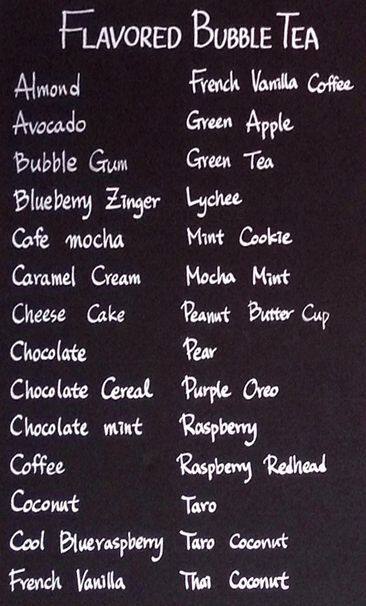 FLAVORED BUBBLE TEA
Almond
Avocado
Bubble Gum
Blueberry Zinger
Cafe mocha
Caramel Cream
Cheese Cake
Chocolate
Chocolate Cereal
Chocolate mint
Coffee
Coconut
Cool Blueraspberry
French Vanilla
French Vanilla Coffee
Green Apple
Green Tea
Lychee
Mint Cookie
Mocha Mint
Peanut Butter Cup
Pear
Purple Oreo
Raspberry
Raspberry Redhead
Taro
Taro Coconut
Thai Coconut